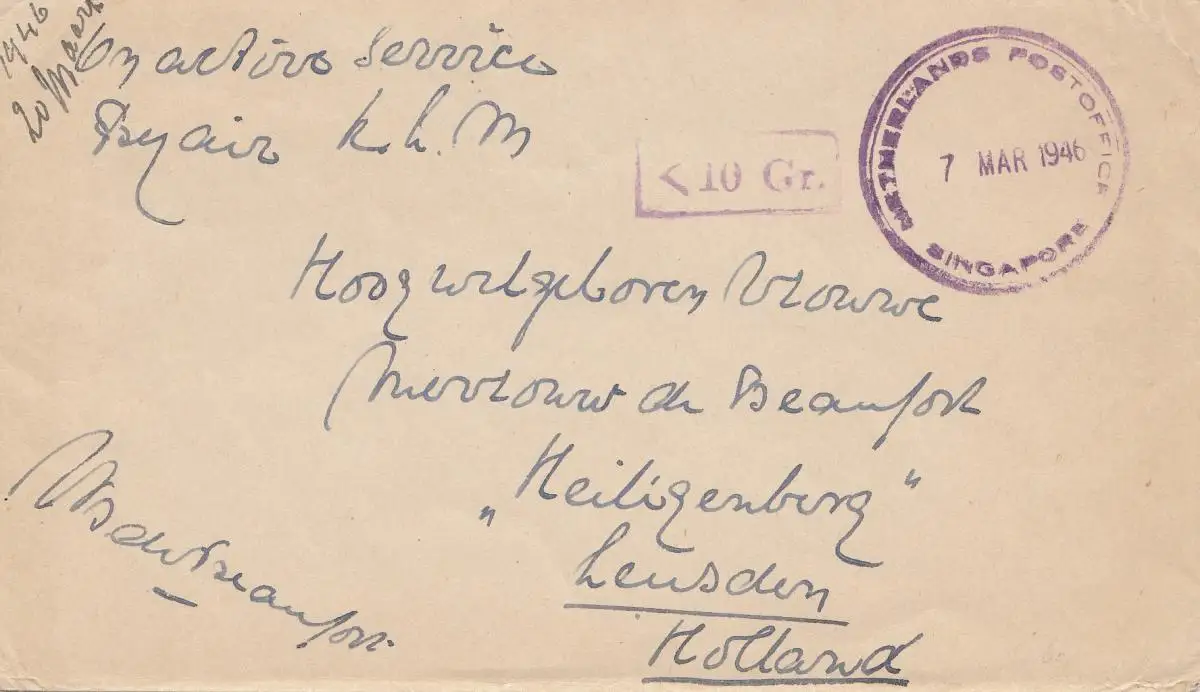 1946
20 Maart
On active Service
By air K.L.M
< 10 Gr.
NETHERLANDS POSTOFFICE
7 MAR 1946
SINGAPORE
Hoogwelgeboren Vrouwe
Mevrouw de Beaufort
„Heiligenberg"
Leusden
Holland
de Beaufort